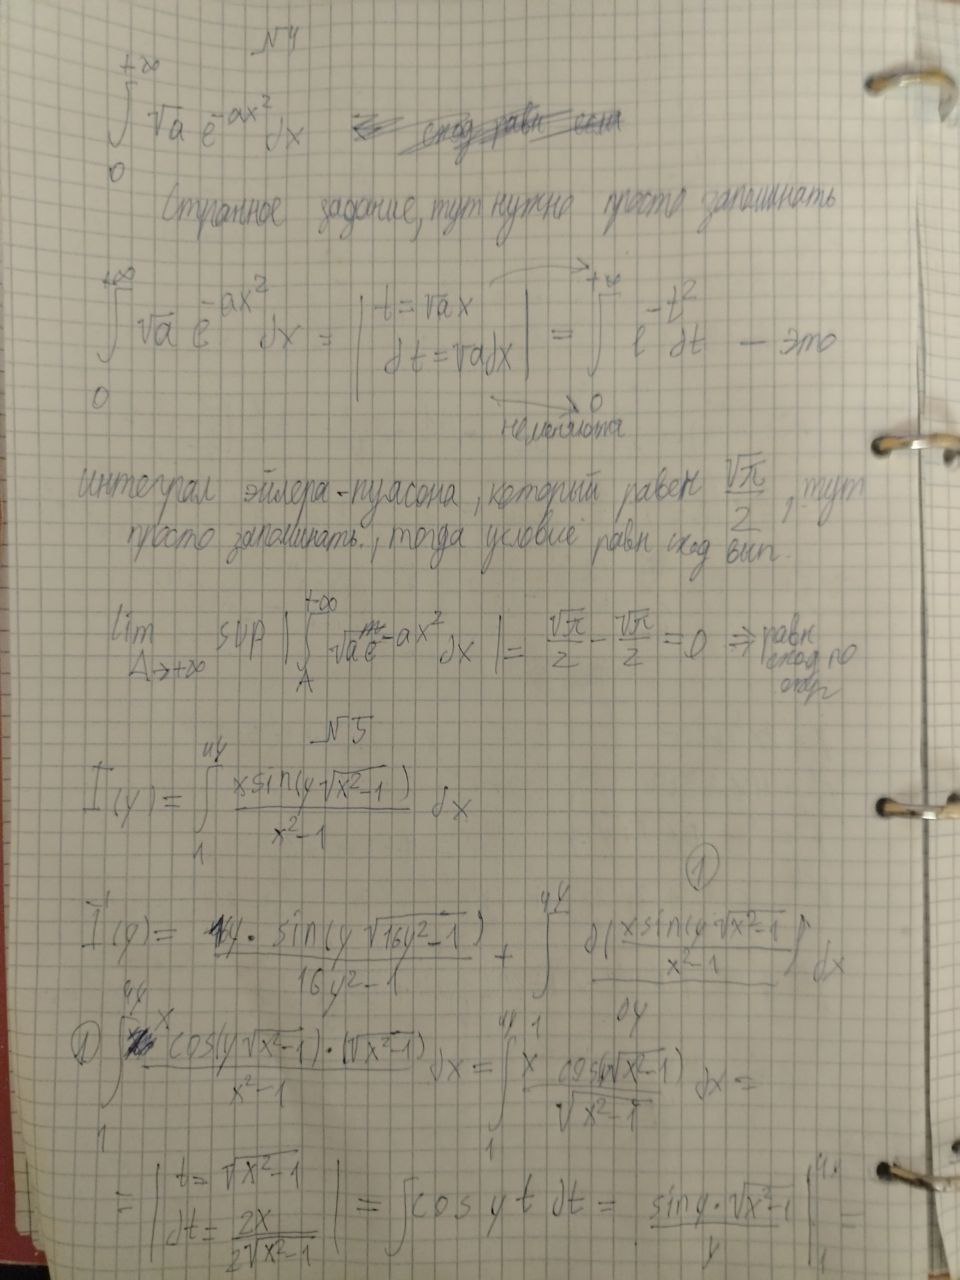 N4
+∞
∫ √a e^{-ax²} dx
0
Странное задание, тут нужно просто запоминать
∫_0^{+∞} √a e^{-ax²} dx = | t = √a x dt = √a dx | = ∫_0^{+∞} e^{-t²} dt — это
не меняются
интеграл эйлера-пуасона, который равен √π/2, тут
просто запоминать., тогда условие равн сход вып.
lim_{A→+∞} sup | ∫_A^{+∞} √a e^{-ax²} dx | = √π/2 - √π/2 = 0 ⇒ равн сход по опр
N5
I(y) = ∫_1^{4y} x sin(y√(x²-1)) / (x²-1) dx
I'(y) = 16y · sin(y√(16y²-1)) / (16y²-1) + ∫_1^{4y} ∂(x sin(y√(x²-1)) / (x²-1)) / ∂y dx ①
① ∫_1^{4y} x cos(y√(x²-1)) · (√(x²-1)) / (x²-1) dx = ∫_1^{4y} x cos(√(x²-1)) / √(x²-1) dx =
= | t = √(x²-1) dt = 2x / 2√(x²-1) | = ∫ cos y t dt = sin y · √(x²-1) / y |_1^{4y} =